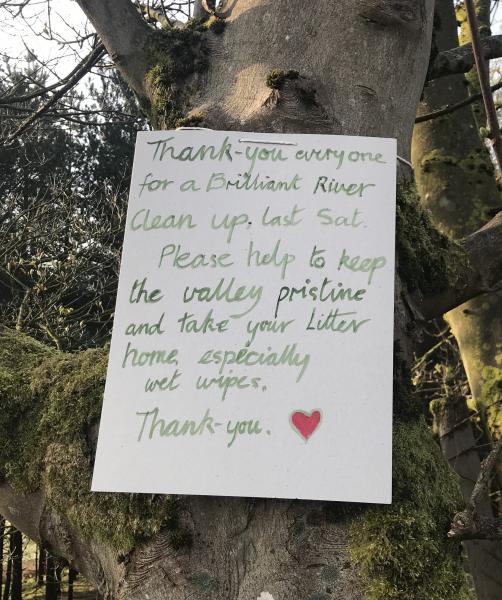 Thank-you everyone
for a Brilliant River
Clean up, last Sat.
Please help to keep
the valley pristine
and take your Litter
home, especially
wet wipes.
Thank-you.